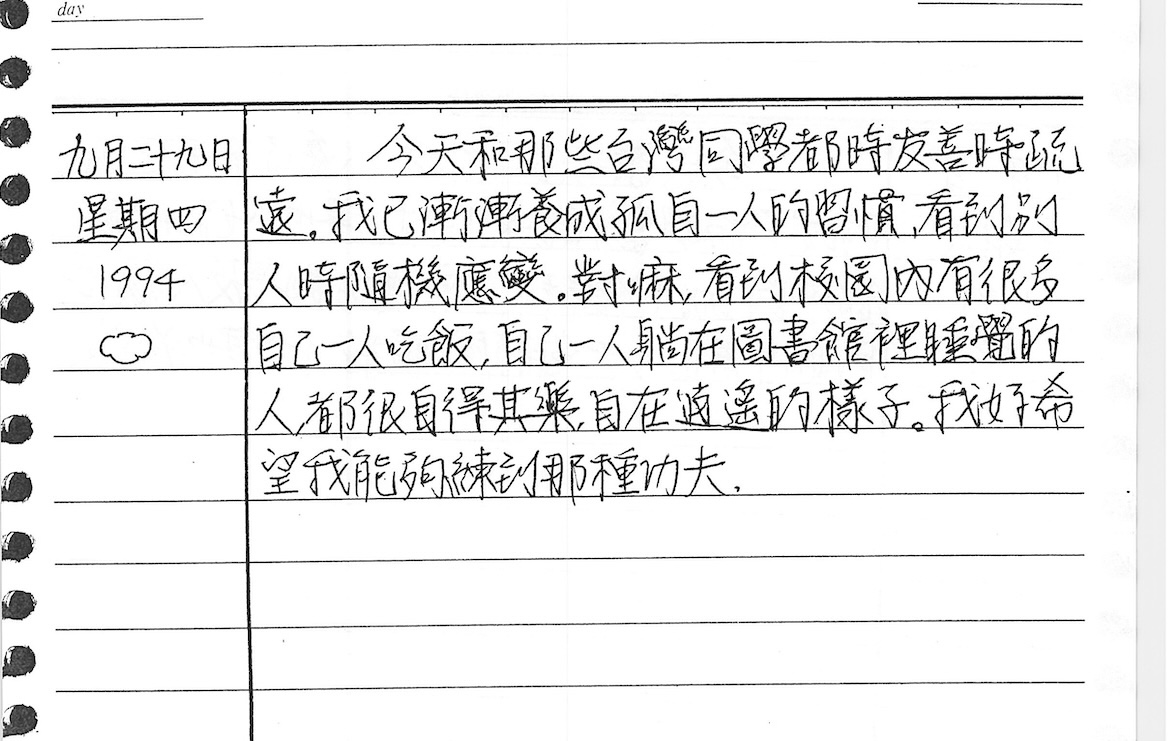 day
九月二十九日
星期四
1994
今天和那些台灣同學都時友善時疏
遠。我已漸漸養成孤自一人的習慣,看到別
人時隨機應變。對嘛,看到校園內有很多
自己一人吃飯,自己一人躺在圖書館裡睡覺的
人,都很自得其樂,自在逍遙的樣子。我好希
望我能夠練到那種功夫.